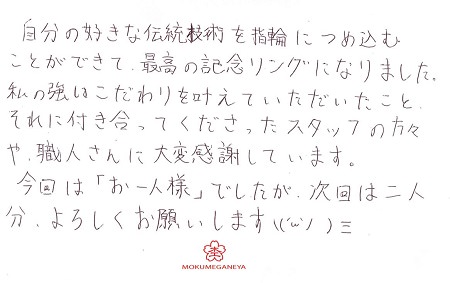 自分の好きな伝統技術を指輪につめ込む
ことができて、最高の記念リングになりました。
私の強いこだわりを叶えていただいたこと、
それに付き合ってくださったスタッフの方々
や、職人さんに大変感謝しています。
今回は「お一人様」でしたが、次回は二人
分、よろしくお願いします ヽ('ω'ノ )三
MOKUMEGANEYA